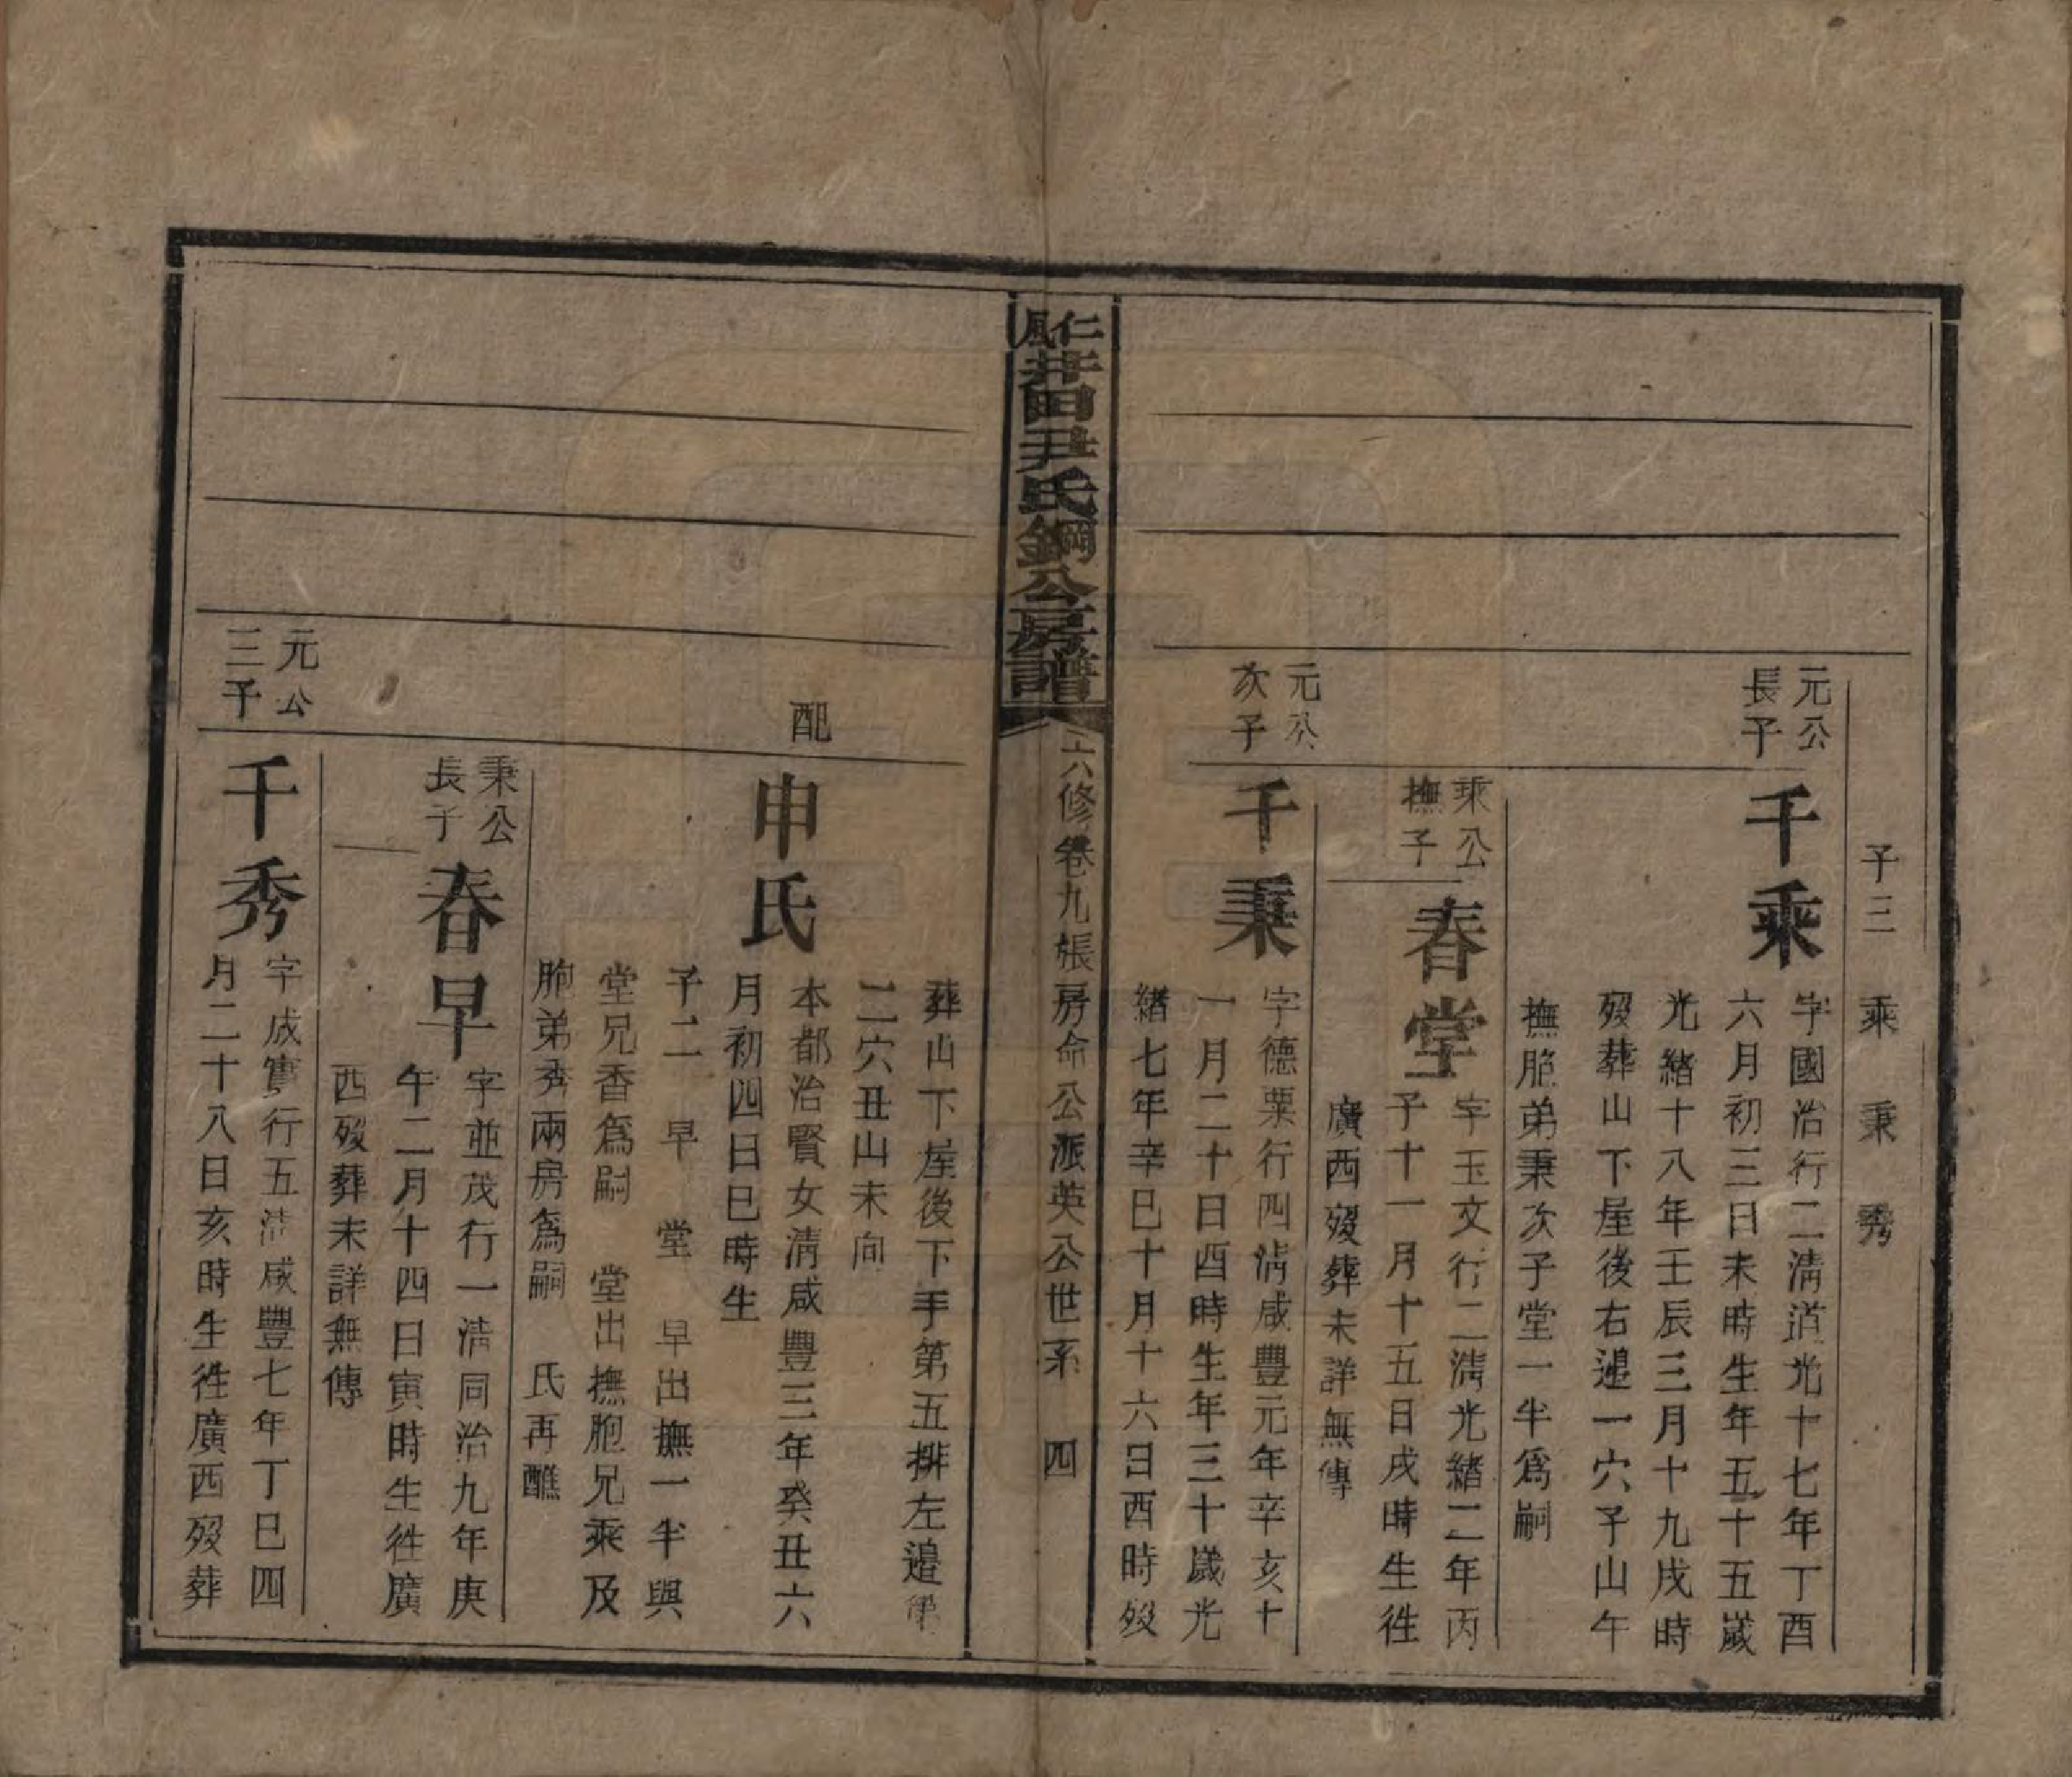 子三　乘　秉　秀
元公
長子
千乘
字國治行二清道光十七年丁酉
六月初三日未時生年五十五歲
光緒十八年壬辰三月十九戌時
歿葬山下屋後右邊一穴子山午
撫胞弟秉次子堂一半為嗣
乘公
撫子
春堂
字玉文行二清光緒二年丙
子十一月十五日戌時生徃
廣西歿葬未詳無傳
元公
次子
千秉
字德粟行四清咸豐元年辛亥十
一月二十日酉時生年三十歲光
緒七年辛巳十月十六日酉時歿
仁風井田尹氏鋼公房譜
六修卷九張房命公派英公世系　四
葬山下屋後下手第五排左邊第
二穴丑山未向
配
申氏
本都治賢女清咸豐三年癸丑六
月初四日巳時生
子二　早　堂　早出撫一半與
堂兄香為嗣　堂出撫胞兄乘及
胞弟秀兩房為嗣　氏再醮
秉公
長子
春早
字並茂行一清同治九年庚
午二月十四日寅時生徃廣
西歿葬未詳無傳
元公
三子
千秀
字成實行五清咸豐七年丁巳四
月二十八日亥時生徃廣西歿葬